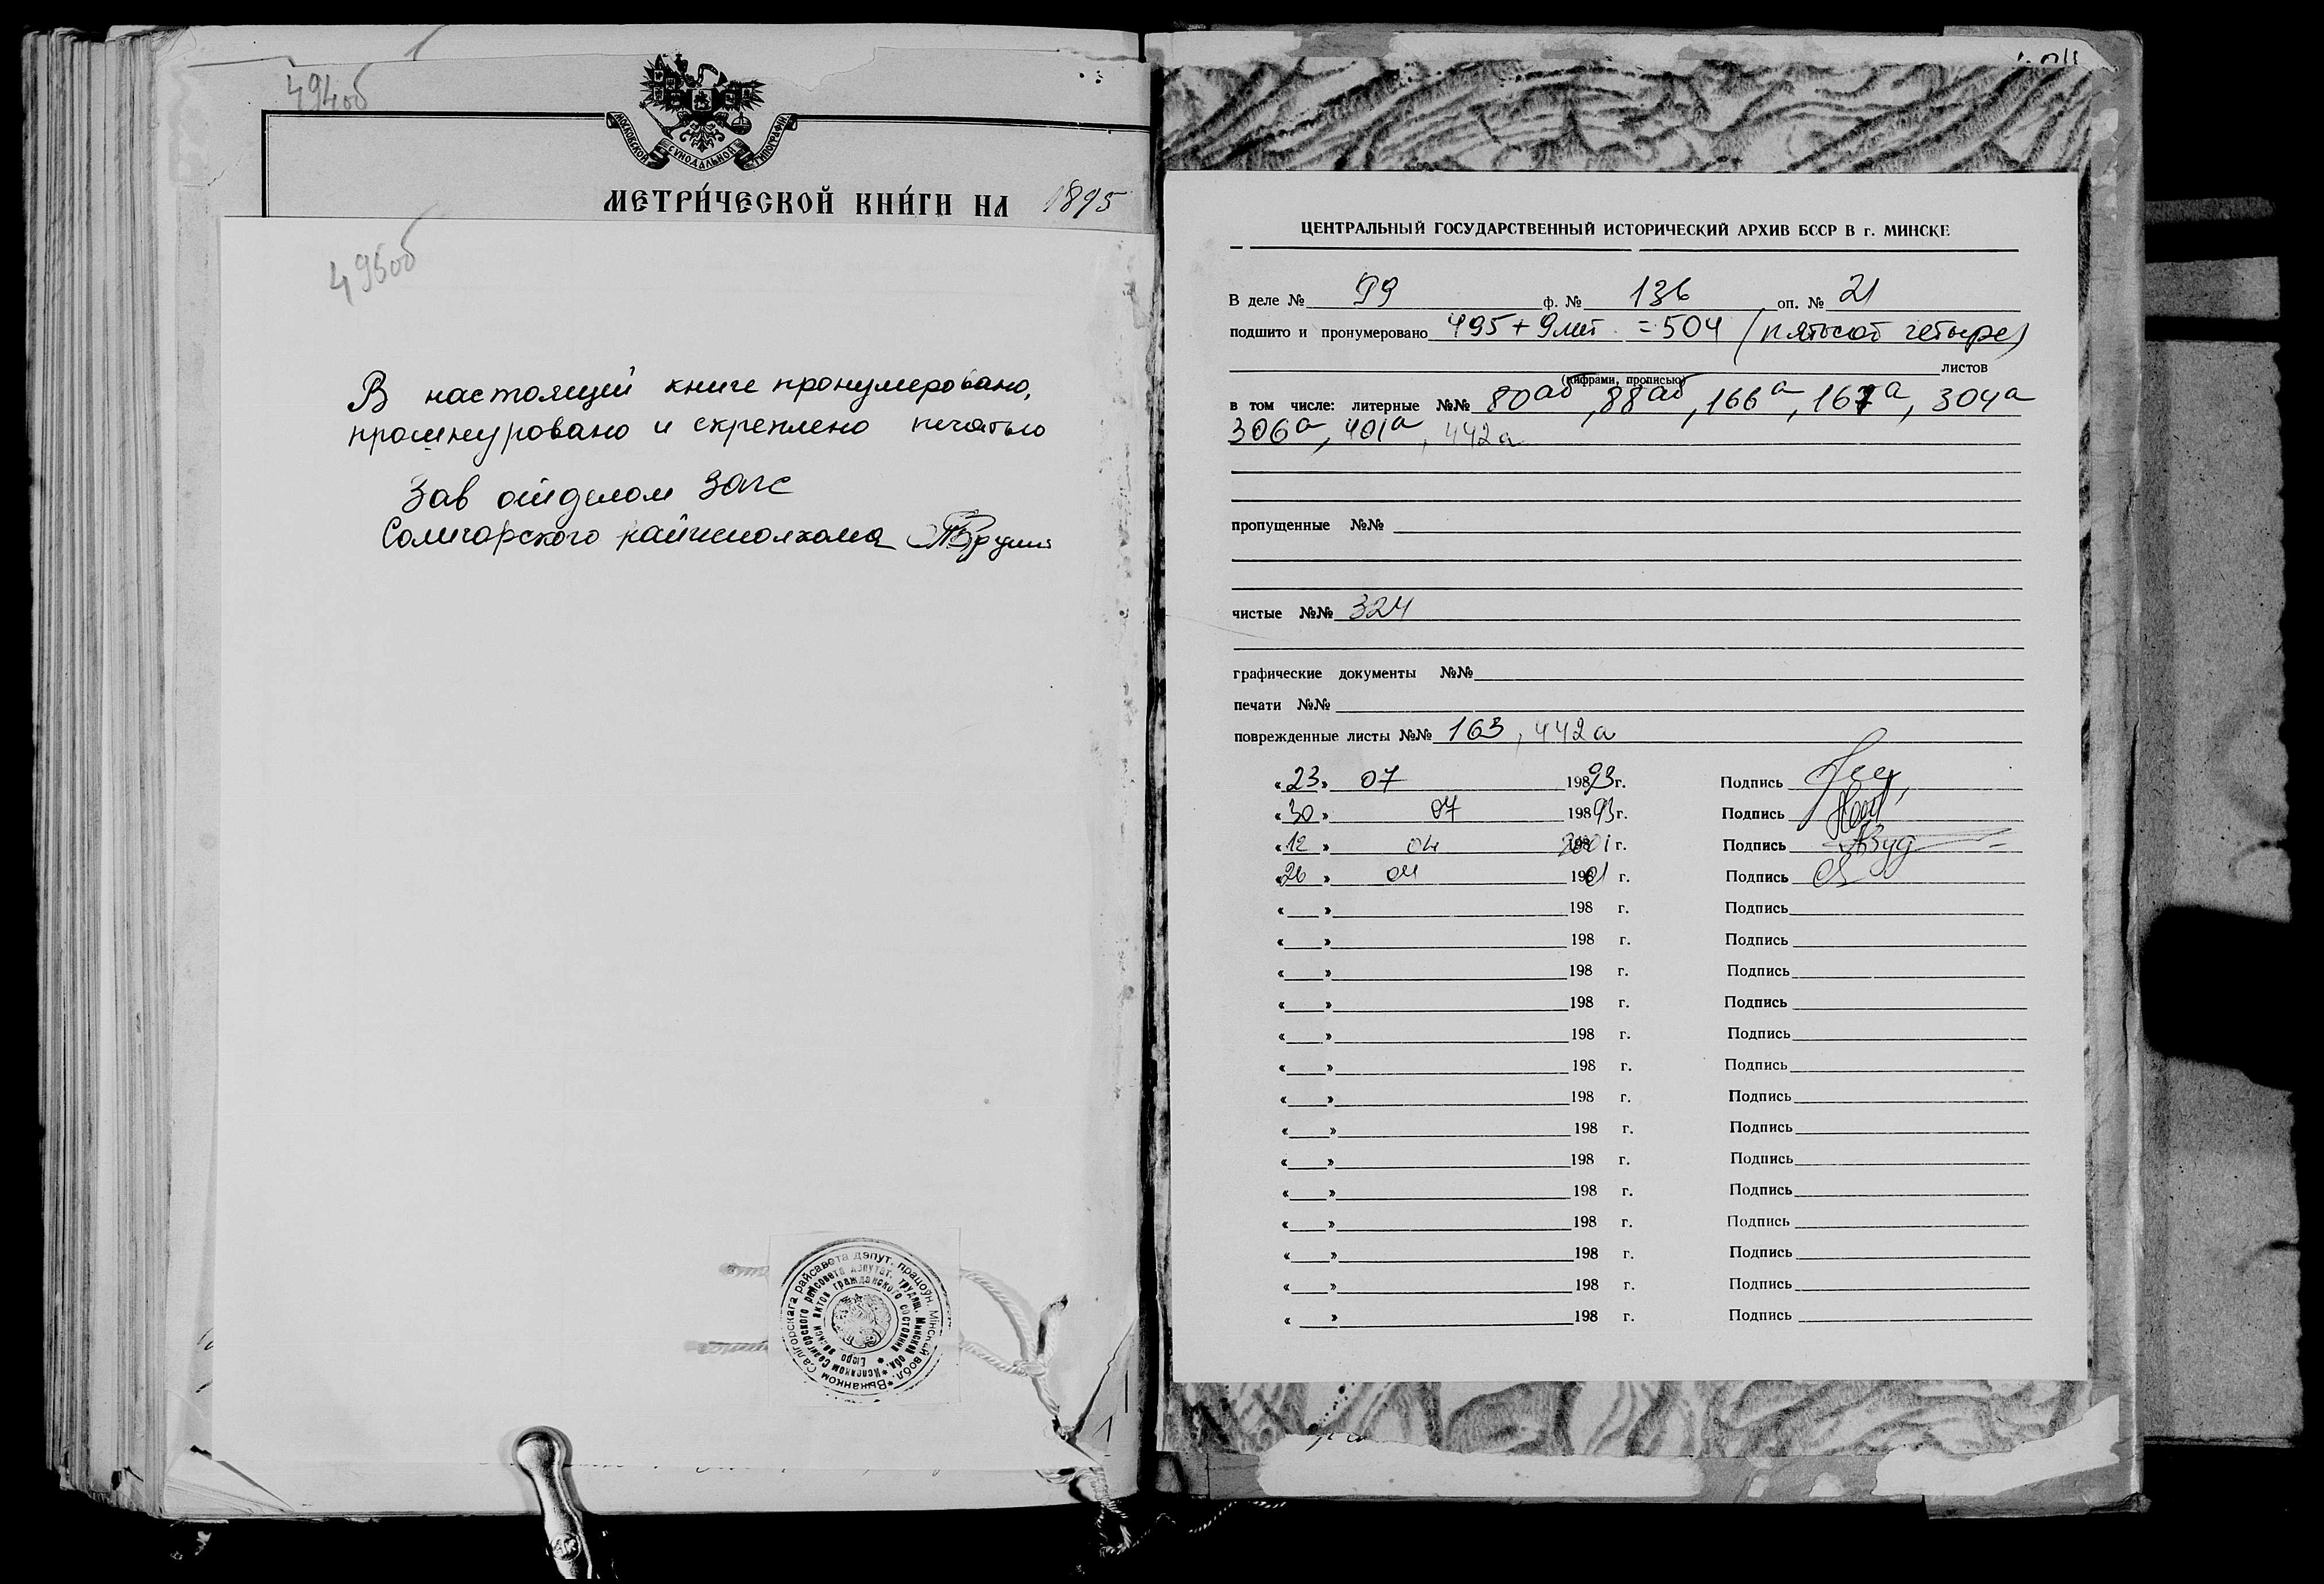 494об
МОСКОВСКОЙ СУНОДАЛЬНОЙ ТИПОГРАФІИ
МЕТРИ́ЧЕСКОЙ КНИ́ГИ НА 1895
495об
В настоящей книге пронумеровано,
прошнуровано и скреплено печатью
Зав отделом загс
Солигорского райисполкома
Выканком Салігорскага райсавета дэпут. працоўн. Мінскай вобл.
Исполком Солигорского райсовета депутат. трудящ. Минской обл.
Бюро записи актов гражданского состояния
ЦЕНТРАЛЬНЫЙ ГОСУДАРСТВЕННЫЙ ИСТОРИЧЕСКИЙ АРХИВ БССР В г. МИНСКЕ
В деле № 99 ф. № 136 оп. № 21
подшито и пронумеровано 495+9лит. =504 (пятьсот четыре)
листов
(цифрами, прописью)
в том числе: литерные №№ 80аб, 88аб, 166а, 167а, 304а
306а, 401а, 442а
пропущенные №№
чистые №№ 324
графические документы №№
печати №№
поврежденные листы №№ 163, 442а
«23» 07 19893г. Подпись
«30» 07 19893г. Подпись
«12» 04 2001 г. Подпись
«26» 04 1901 г. Подпись
« » 198 г. Подпись
« » 198 г. Подпись
« » 198 г. Подпись
« » 198 г. Подпись
« » 198 г. Подпись
« » 198 г. Подпись
« » 198 г. Подпись
« » 198 г. Подпись
« » 198 г. Подпись
« » 198 г. Подпись
« » 198 г. Подпись
« » 198 г. Подпись
« » 198 г. Подпись
« » 198 г. Подпись